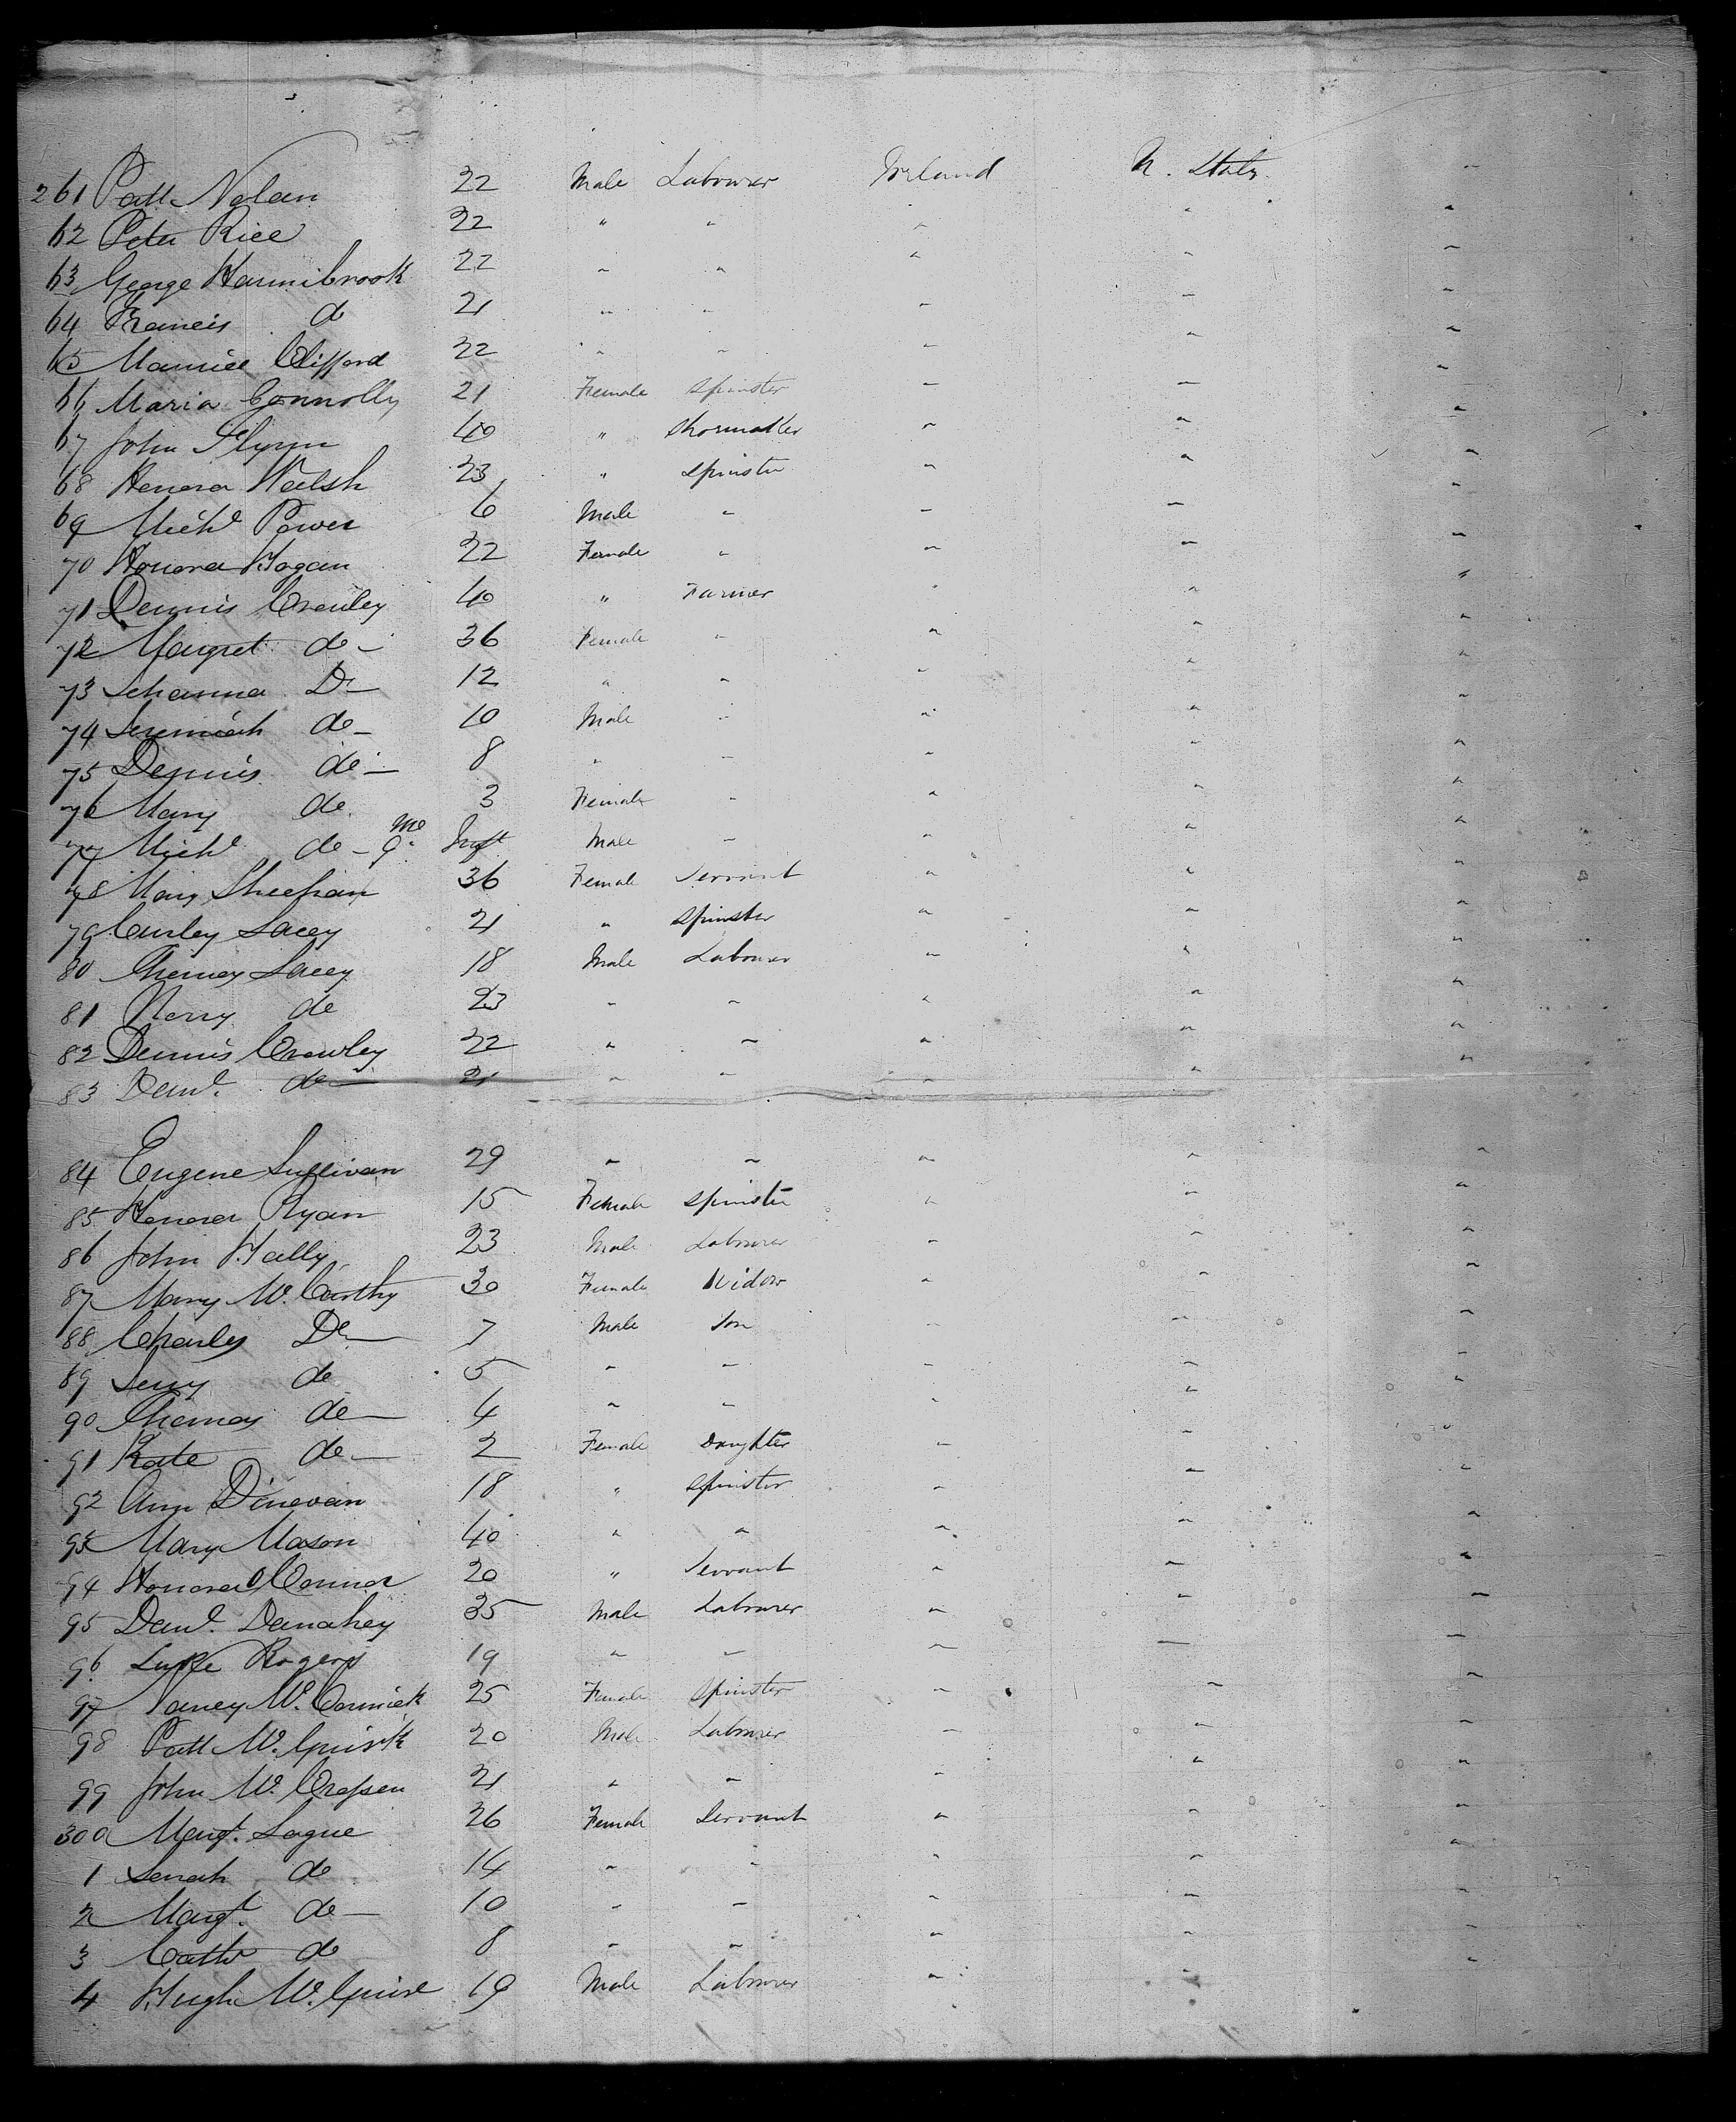 261 Patt Nolan 22 Male Labourer Ireland U. States "
62 Peter Rice 22 " " " " "
63 George Hannibrook 22 " " " " "
64 Francis do 21 " " " " "
65 Maurice Clifford 22 " " " " "
66 Maria Connolly 21 Female Spinster " " "
67 John Flynn 40 " Shoemaker " " "
68 Henora Walsh 23 " Spinster " " "
69 Michl Power 6 Male " " " "
70 Honora Hogan 22 Female " " " "
71 Dennis Crowley 40 " Farmer " " "
72 Margret do 36 Female " " " "
73 Johanna Do 12 " " " " "
74 Jeremiah do 10 Male " " " "
75 Dennis do 8 " " " " "
76 Mary do 3 Female " " " "
77 Michl do 9 mo Inft Male " " " "
78 Mary Sheehan 36 Female Servant " " "
79 Curley Lacey 21 " Spinster " " "
80 Thomas Lacey 18 Male Labourer " " "
81 Nerry do 23 " " " " "
82 Dennis Crowley 22 " " " " "
83 Danl. do 21 " " " " "
84 Eugene Sullivan 29 " " " " "
85 Honora Ryan 15 Female Spinster " " "
86 John Hally 23 Male Labourer " " "
87 Mary Mc.Carthy 30 Female Widow " " "
88 Charles Do 7 Male Son " " "
89 Jerry do 5 " " " " "
90 Thomas do 4 " " " " "
91 Kate do 2 Female Daughter " " "
92 Ann Dinevan 18 " Spinster " " "
93 Mary Mason 40 " " " " "
94 Honora OConnor 20 " Servant " " "
95 Danl. Danahey 35 Male Labourer " " "
96 Luke Rogers 19 " " " " "
97 Nancy Mc.Cormick 25 Female Spinster " " "
98 Patt Mc.Gurk 20 Male Labourer " " "
99 John Mc.Crossen 21 " " " " "
300 Margt. Logue 26 Female Servant " " "
1 Sarah do 14 " " " " "
2 Margt. do 10 " " " " "
3 Cathe do 8 " " " " "
4 Hugh Mc.Guire 19 Male Labourer " " "